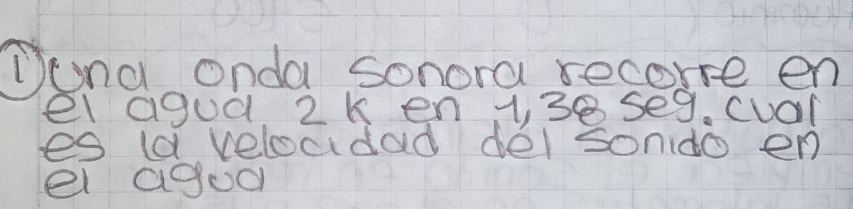 ① una onda sonora recorre en
el agua 2 k en 1,38 seg. cual
es la velocidad del sonido en
el agua